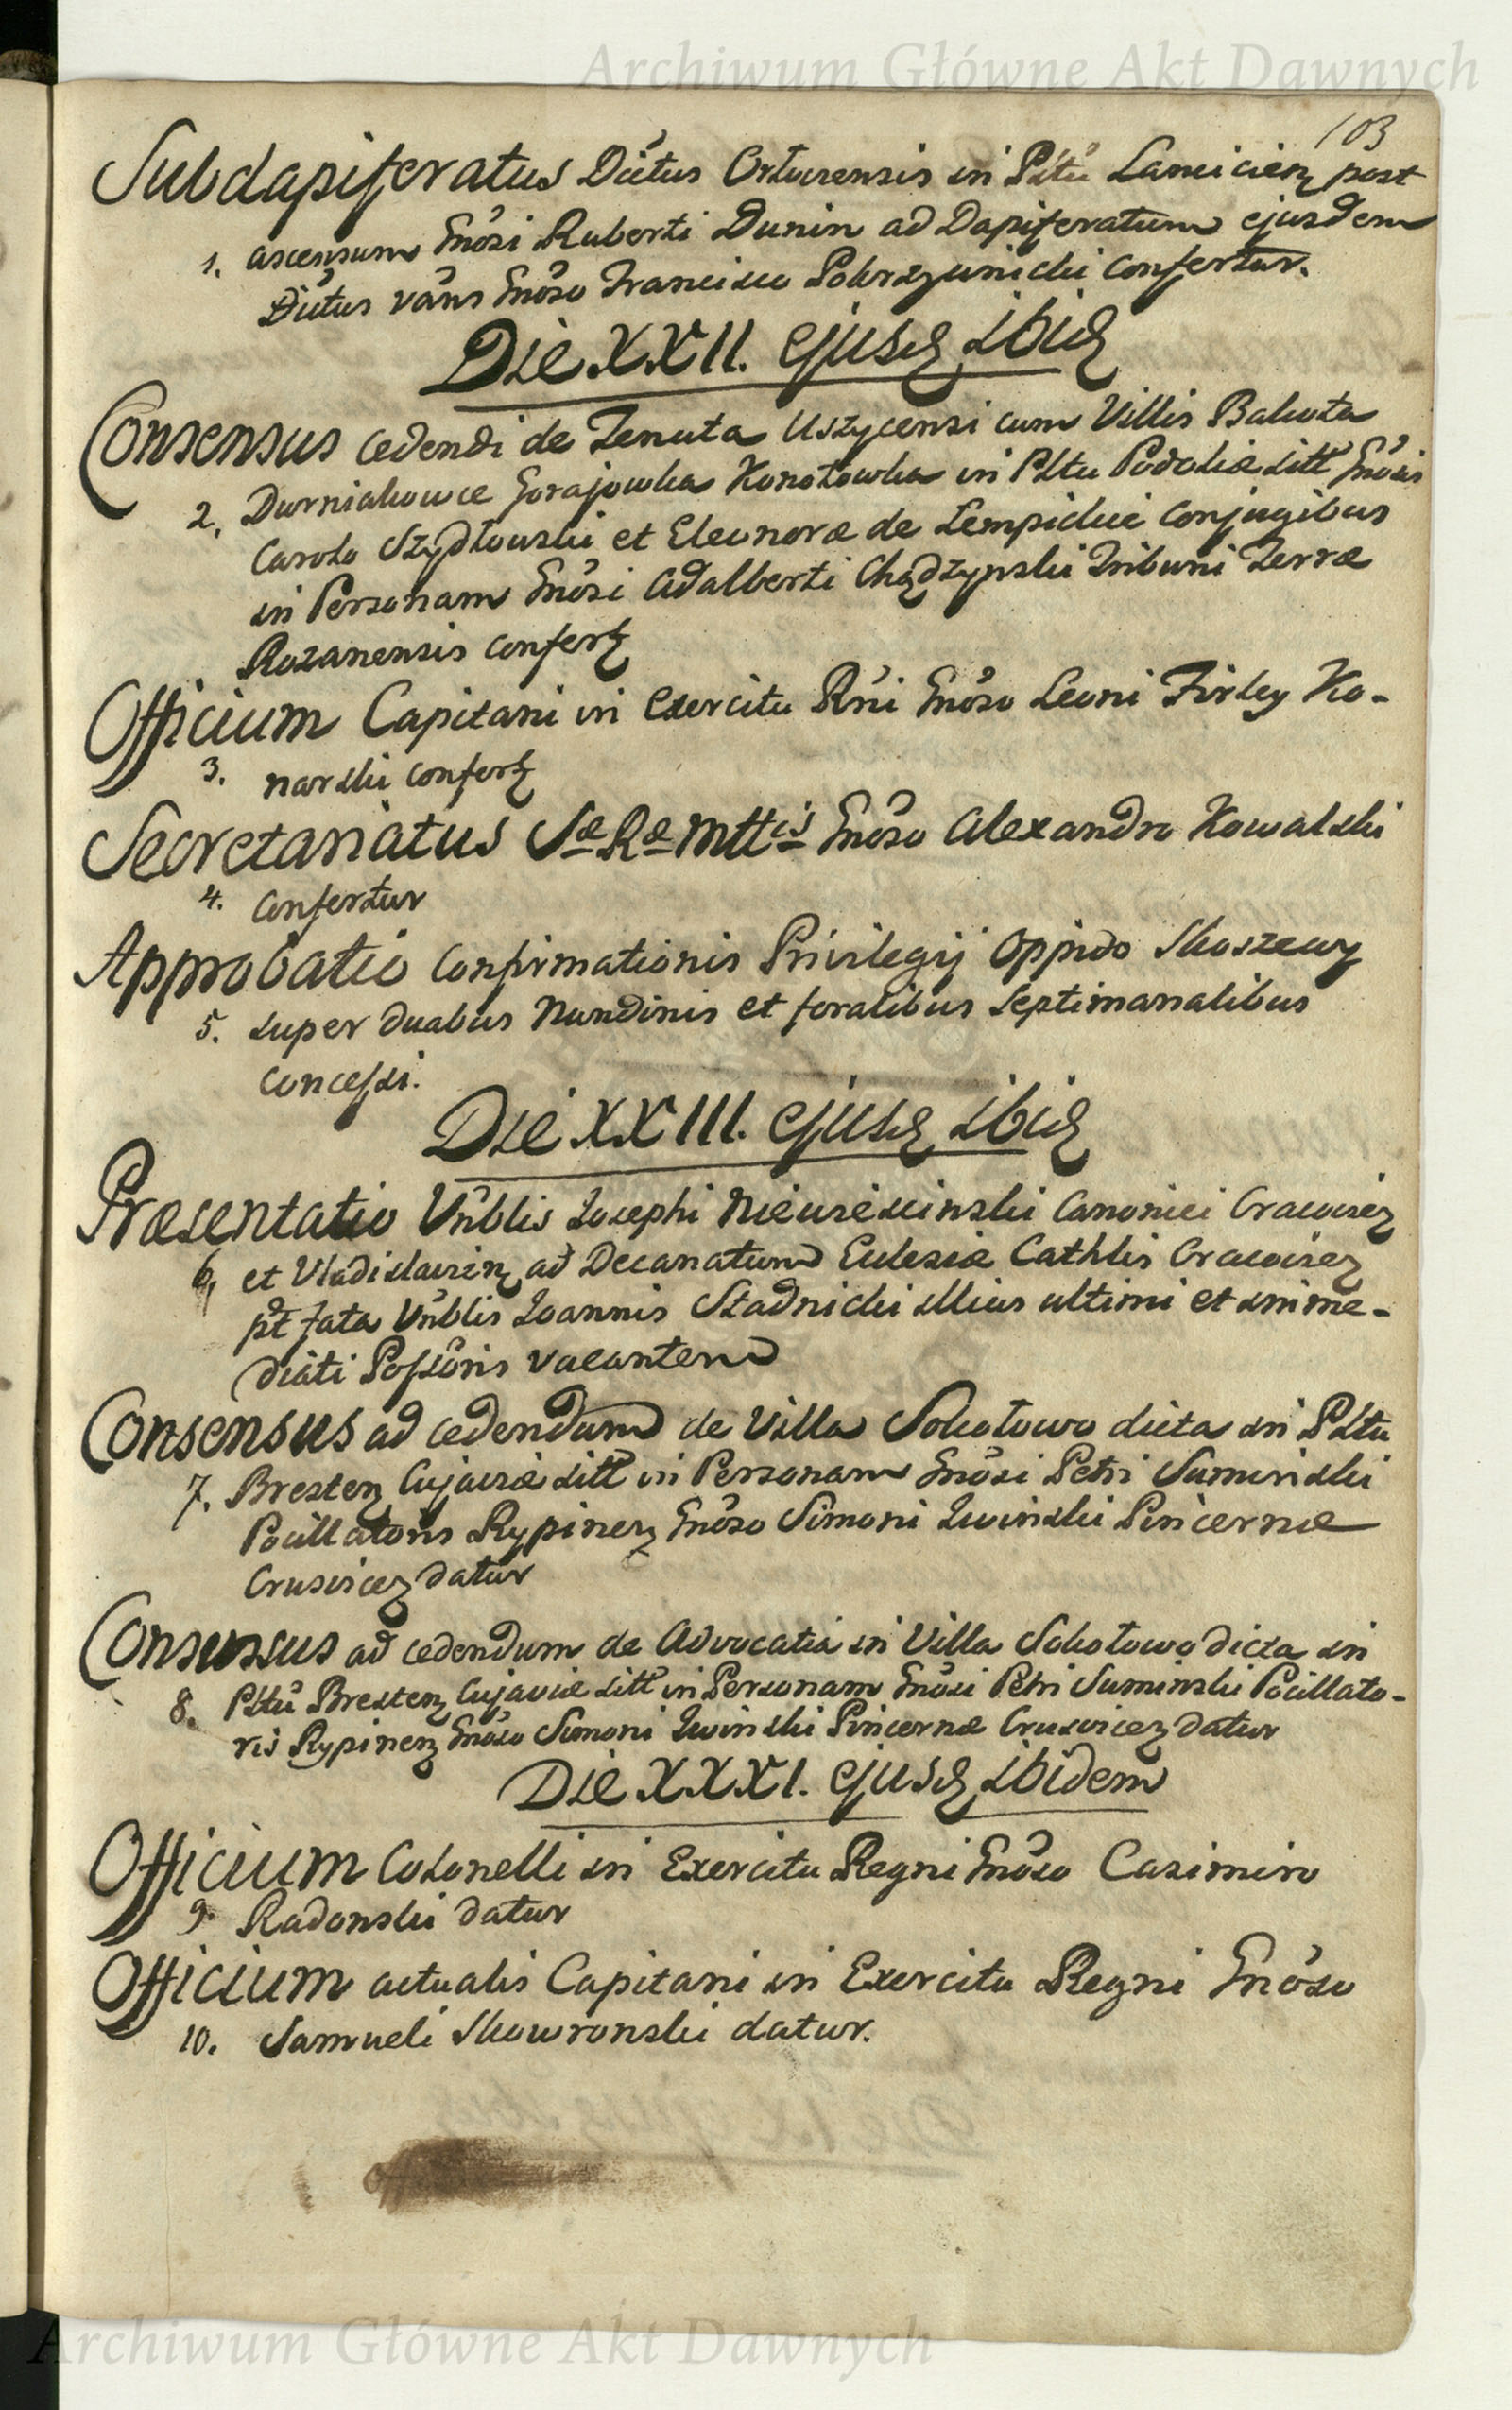 Archiwum Główne Akt Dawnych
103
Subdapiferatus Dictus Orloviensis in Pltu Lancicien post
1. ascensum Gnosi Ruberti Dunin ad Dapiferatum ejusdem
Dictus vans Gnoso Francisco Pokrzywnicki confertur.
Die XXII. ejusd ibid
Consensus cedendi de Tenuta Uszycensi cum Villis Bakota
2. Durniakowce Gorajowka Konotowka in Pltu Podoliæ sitt Gnosis
Carolo Szydłowski et Eleonoræ de Lempickie Conjugibus
in Personam Gnosi Adalberti Chądzynski Tribuni Terræ
Rozanensis confert
Officium Capitani in Exercitu Rni Gnoso Leoni Firley Ko-
3. narski confert
Secretariatus Sæ Ræ Mttis Gnoso Alexandro Kowalski
4. Confertur
Approbatio Confirmationis Privilegij Oppido Skoszewy
5. super duabus Nundinis et foralibus Septimanalibus
concessi.
Die XXIII. ejusd ibid
Præsentatio Vnblis Josephi Niewiescinski Canonici Cracovien
6. et Vladislavien ad Decanatum Eclesiæ Cathlis Cracovien
pt fata Vnblis Joannis Stadnicki illius ultimi et imme-
diati Possoris vacantem
Consensus ad cedendum de Villa Sokołowo dicta in Pltu
7. Bresten Cujaviæ sitt in Personam Gnosi Petri Suminski
Pocillatoris Rypinen Gnoso Simoni Zwinski Pincernæ
Crusvicen datur
Consensus ad cedendum de Advocatia in Villa Sokołowo dicta in
8. Pltu Bresten Cujaviæ sitt in Personam Gnosi Petri Suminski Pocillato-
ris Rypinen Gnoso Simoni Zwinski Pincernæ Crusvicen datur
Die XXXI. ejusd ibidem
Officium Colonelli in Exercitu Regni Gnoso Casimiro
9. Radonski datur
Officium actualis Capitani in Exercitu Regni Gnoso
10. Samueli Skowronski datur.
Off
Archiwum Główne Akt Dawnych